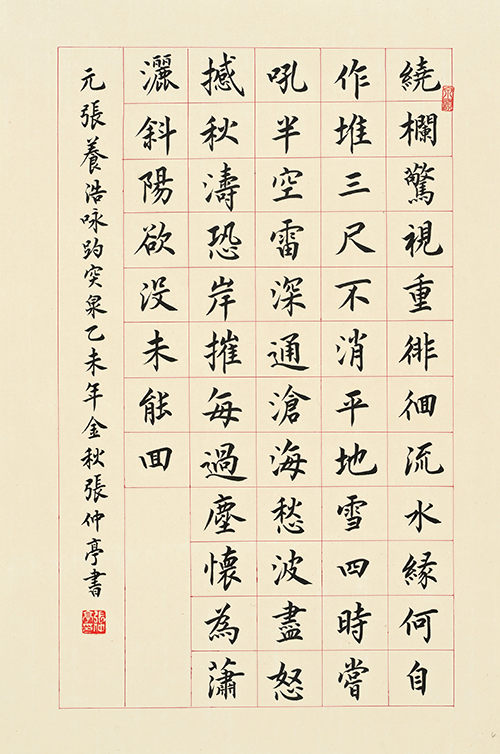 繞欄驚視重徘徊流水緣何自
作堆三尺不消平地雪四時嘗
吼半空雷深通滄海愁波盡怒
撼秋濤恐岸摧每過塵懷為蕭
灑斜陽欲没未能回
元張養浩咏趵突泉乙未年金秋張仲亭書